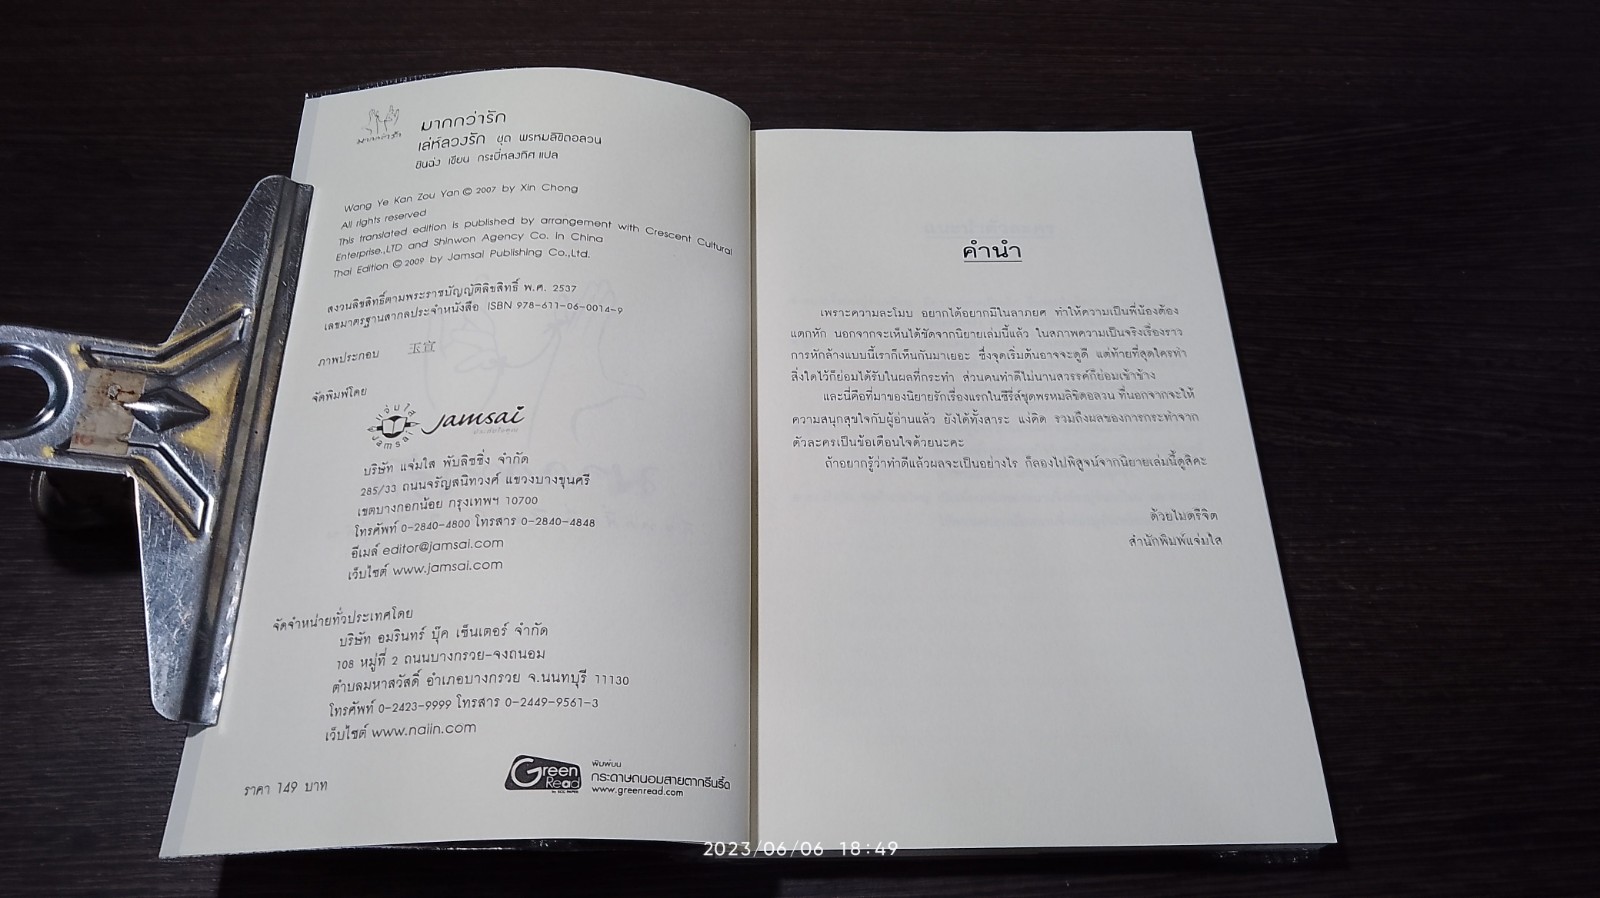 มากกว่ารัก
มากกว่ารัก
เล่ห์ลวงรัก ชุด พรหมลิขิตอลวน
ซินฉง เขียน กระบี่หลงทิศ แปล
Wang Ye Kan Zou Yan © 2007 by Xin Chong
All rights reserved
This translated edition is published by arrangement with Crescent Cultural
Enterprise.,LTD and Shinwon Agency Co. in China
Thai Edition © 2009 by Jamsai Publishing Co.,Ltd.
สงวนลิขสิทธิ์ตามพระราชบัญญัติลิขสิทธิ์ พ.ศ. 2537
เลขมาตรฐานสากลประจำหนังสือ ISBN 978-611-06-0014-9
ภาพประกอบ 玉宣
จัดพิมพ์โดย
แจ่มใส
Jamsai
Jamsai
บริษัท แจ่มใส พับลิชชิ่ง จำกัด
285/33 ถนนจรัญสนิทวงศ์ แขวงบางขุนศรี
เขตบางกอกน้อย กรุงเทพฯ 10700
โทรศัพท์ 0-2840-4800 โทรสาร 0-2840-4848
อีเมล์ editor@jamsai.com
เว็บไซต์ www.jamsai.com
จัดจำหน่ายทั่วประเทศโดย
บริษัท อมรินทร์ บุ๊ค เซ็นเตอร์ จำกัด
108 หมู่ที่ 2 ถนนบางกรวย-จงถนอม
ตำบลมหาสวัสดิ์ อำเภอบางกรวย จ.นนทบุรี 11130
โทรศัพท์ 0-2423-9999 โทรสาร 0-2449-9561-3
เว็บไซต์ www.naiin.com
ราคา 149 บาท
Green
Read
by SCG PAPER
พิมพ์บน
กระดาษถนอมสายตากรีนรี้ด
www.greenread.com
คำนำ
เพราะความละโมบ อยากได้อยากมีในลาภยศ ทำให้ความเป็นพี่น้องต้อง
แตกหัก นอกจากจะเห็นได้ชัดจากนิยายเล่มนี้แล้ว ในสภาพความเป็นจริงเรื่องราว
การหักล้างแบบนี้เราก็เห็นกันมาเยอะ ซึ่งจุดเริ่มต้นอาจจะดูดี แต่ท้ายที่สุดใครทำ
สิ่งใดไว้ก็ย่อมได้รับในผลที่กระทำ ส่วนคนทำดีไม่นานสวรรค์ก็ย่อมเข้าข้าง
และนี่คือที่มาของนิยายรักเรื่องแรกในซีรี่ส์ชุดพรหมลิขิตอลวน ที่นอกจากจะให้
ความสนุกสุขใจกับผู้อ่านแล้ว ยังได้ทั้งสาระ แง่คิด รวมถึงผลของการกระทำจาก
ตัวละครเป็นข้อเตือนใจด้วยนะคะ
ถ้าอยากรู้ว่าทำดีแล้วผลจะเป็นอย่างไร ก็ลองไปพิสูจน์จากนิยายเล่มนี้ดูสิคะ
ด้วยไมตรีจิต
สำนักพิมพ์แจ่มใส
2023/06/06 18:49